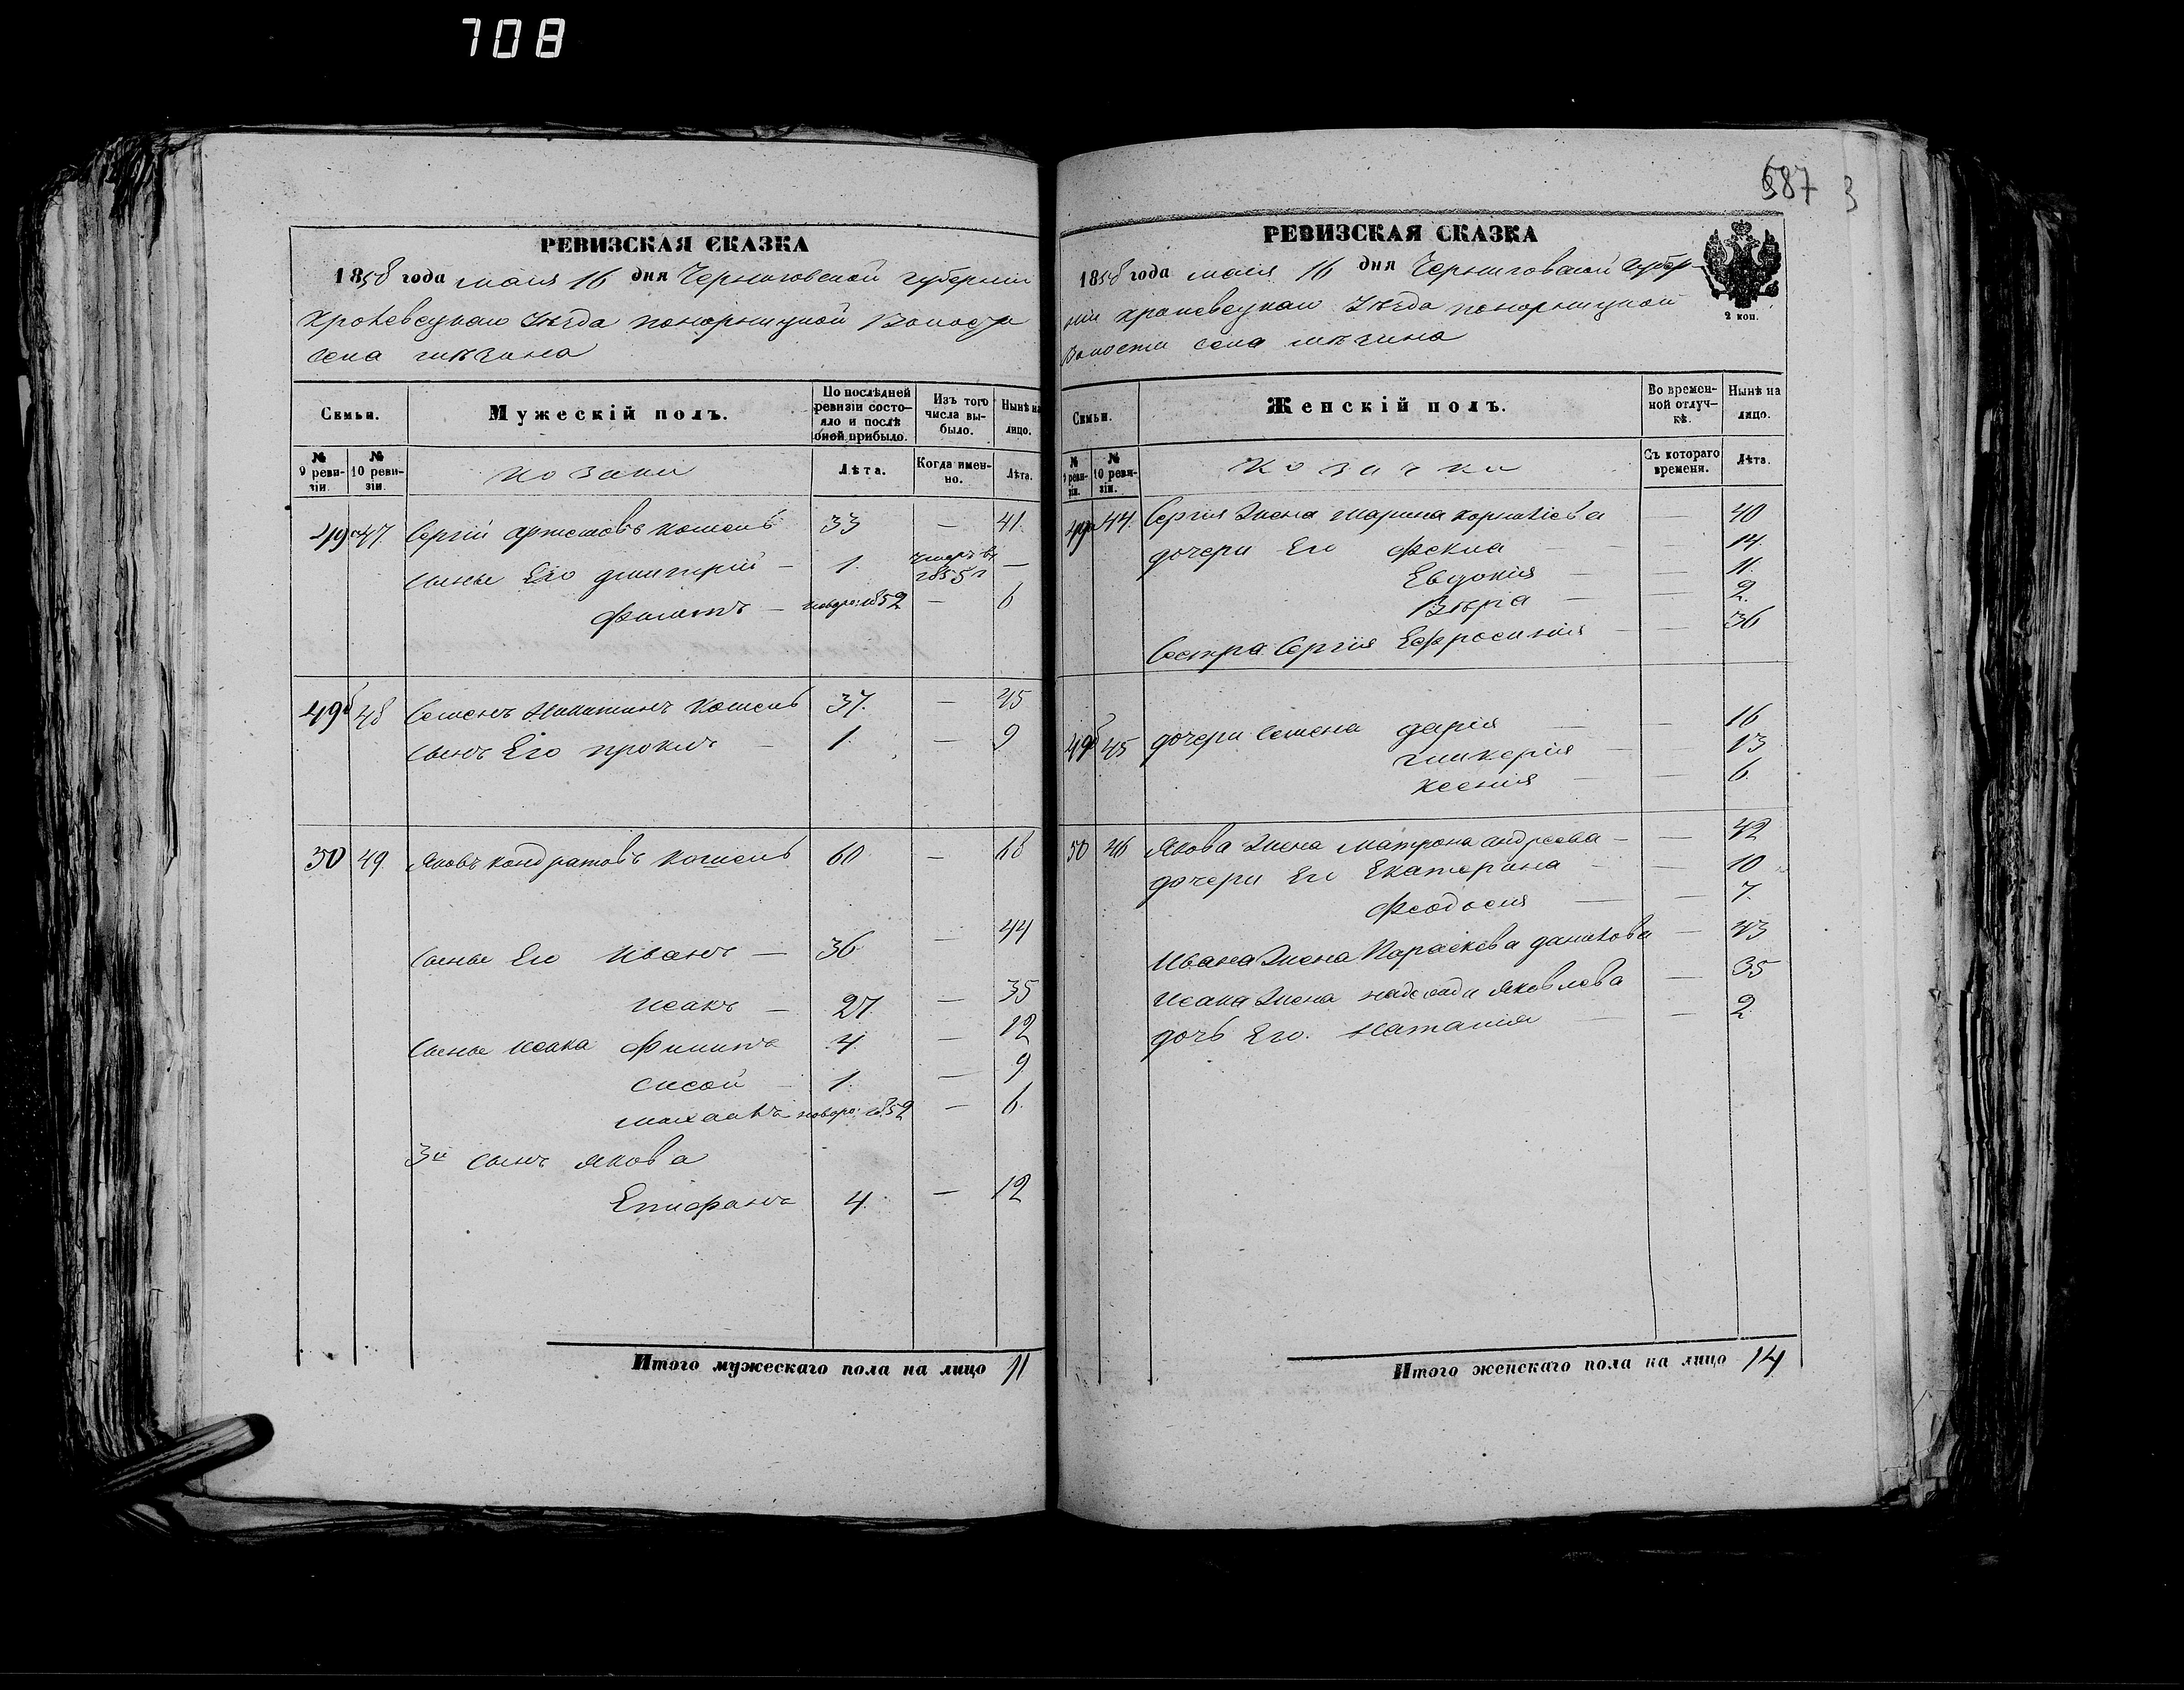 708
РЕВИЗСКАЯ СКАЗКА
1858 года маія 16 дня Черниговской губерніи
Кролевецкаго Уѣзда понорницкой Волости
села
Семьи.
Мужескій полъ.
По послѣдней ревизіи состояло и послѣ оной прибыло.
Изъ того числа выбыло.
Нынѣ на лицо.
№ 9 ревизіи.
№ 10 ревизіи.
козаки
Лѣта.
Когда именно.
Лѣта.
49а 47. Сергій Артемовъ Кошель 33 — 41.
сынье Его дмитрій — 1. умеръ въ 1855 г —
Филипъ — новоро: 1852 — 6
49б 48 Семенъ Никитинъ Кошель 37. — 45
сынъ Его проклъ — 1. — 9
50 49. Яковъ Кондратовъ Кошель 60 — 68
сынье Его Иванъ — 36 — 44
Исакъ — 27. — 35
сынье Исака Филипъ 4. — 12
сисой — 1. — 9
михаилъ новоро: 1852 — 6.
3й сынъ якова
Епифанъ 4. — 12
Итого мужескаго пола на лицо 11
687 3
РЕВИЗСКАЯ СКАЗКА
1858 года маія 16 дня Черниговской губер-
ніи Кролевецкаго Уѣзда понорницкой
Волости села
2 коп.
Семьи.
Женскій полъ.
Во временной отлучкѣ.
Нынѣ на лицо.
№ 9 ревизіи.
№ 10 ревизіи.
козачки
Съ котораго времени.
Лѣта.
49а 44. Сергія жена Марина корніева — 40
дочери Его Фекла — — 14.
Евдокія — — 11.
Вѣра — — 2.
Сестра Сергія Ефросинія — — 36
49б 45 дочери Семена дарія — — 16
гликерія — — 13
ксенія — — 6.
50 46 Якова жена Матрона андреева — — 42
дочери Его Екатерина — — 10
Феодосія — — 7.
Ивана жена Параскева данилова — 43
Исака жена надежда Яковлева — 35
дочь Его. Наталія — — 2.
Итого женскаго пола на лицо 14